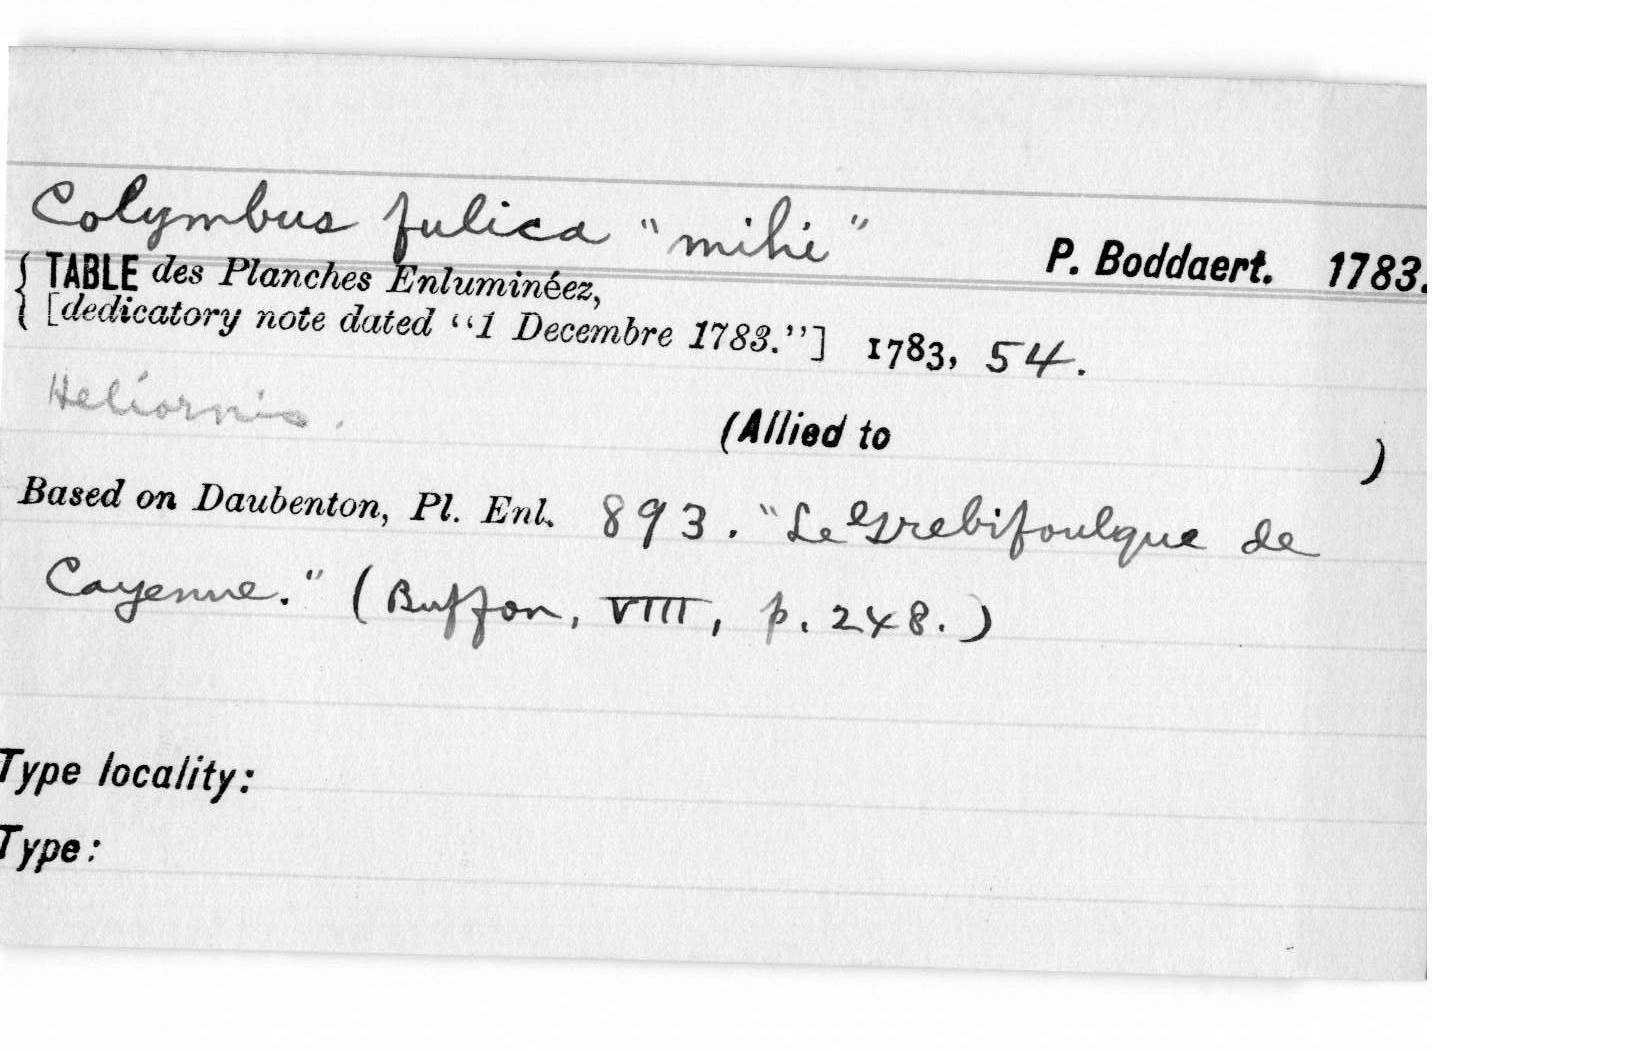 Colymbus fulica "mihi"
P. Boddaert. 1783.
{ TABLE des Planches Enluminéez,
{ [dedicatory note dated “1 Decembre 1783.”] 1783, 54.
Heliornis.
(Allied to )
Based on Daubenton, Pl. Enl. 893. "Le Grebifoulque de
Cayenne." (Buffon, VIII, p. 248.)
Type locality:
Type: